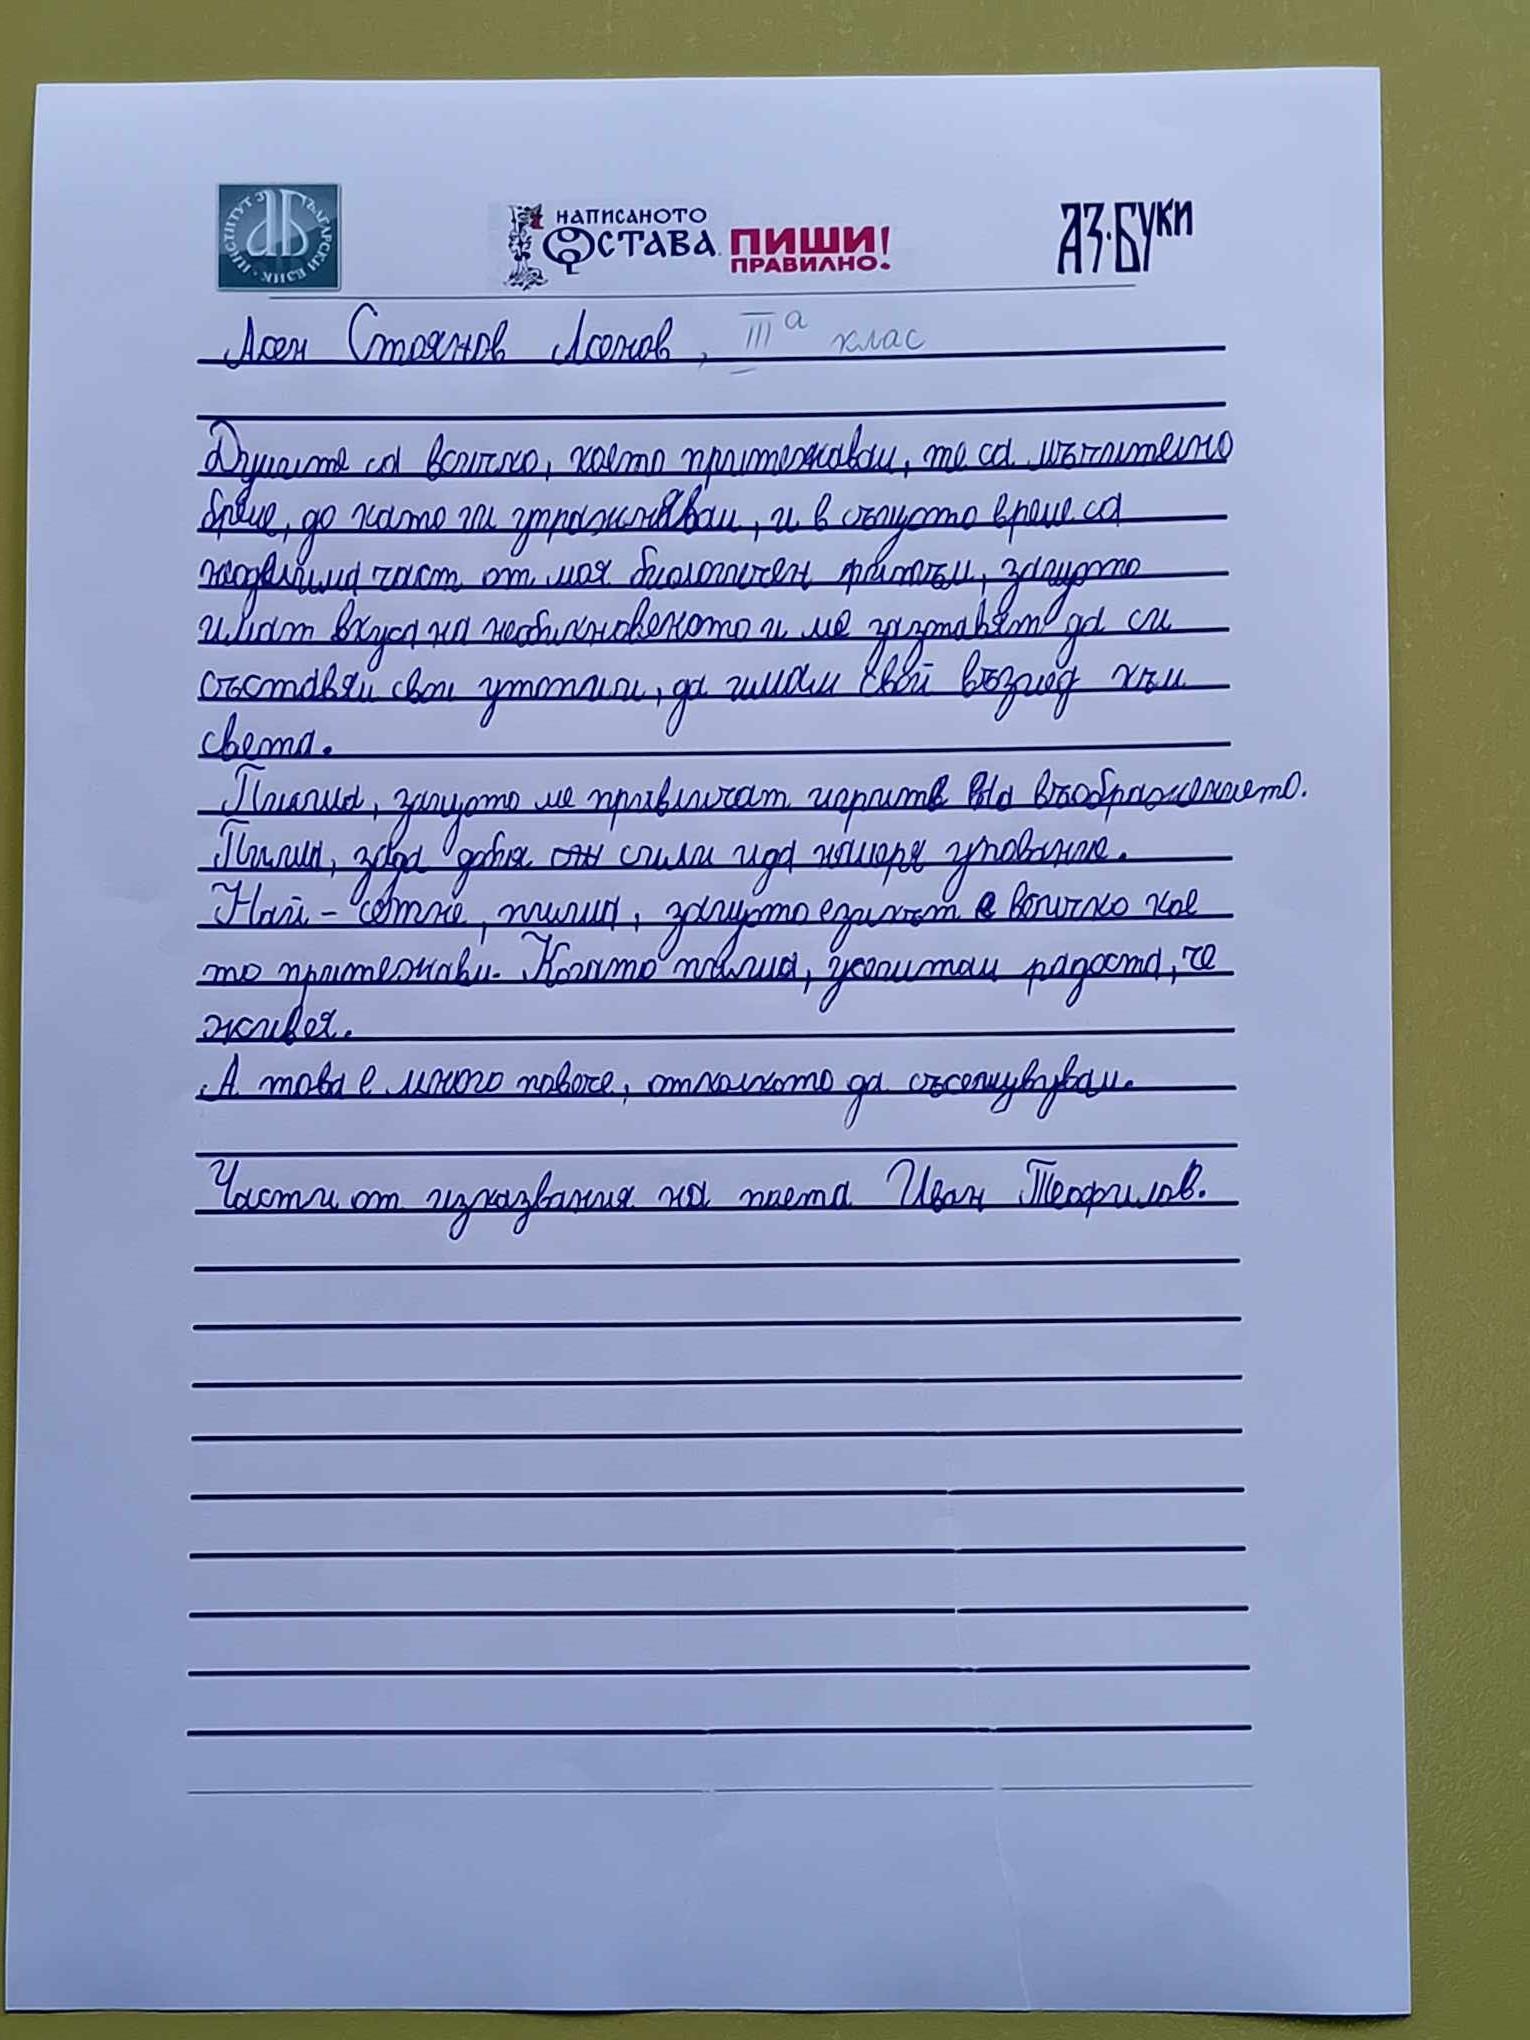 ИНСТИТУТ ЗА БЪЛГАРСКИ ЕЗИК
НАПИСАНОТО ОСТАВА. ПИШИ ПРАВИЛНО!
АЗ·БУКИ
Асен Стоянов Асенов, IIIа клас
Думите са всичко, което притежавам, те са мъчително
бреме, до като ги упражнявам, и в същото време са
неделима част от моя биологичен ритъм, защото
имат вкуса на необикновеното и ме заставят да си
съставям свои утопии, да имам свой възглед към
света.
Пиша, защото ме привличат игрите на въображението.
Пиша, за да добия сили и да намеря упование.
Най-сетне, пиша, защото езикът е всичко кое
то притежавам. Когато пиша, усещам радостта, че
живея.
А това е много повече, отколкото да съществувам.
Части от изказвания на поета Иван Теофилов.